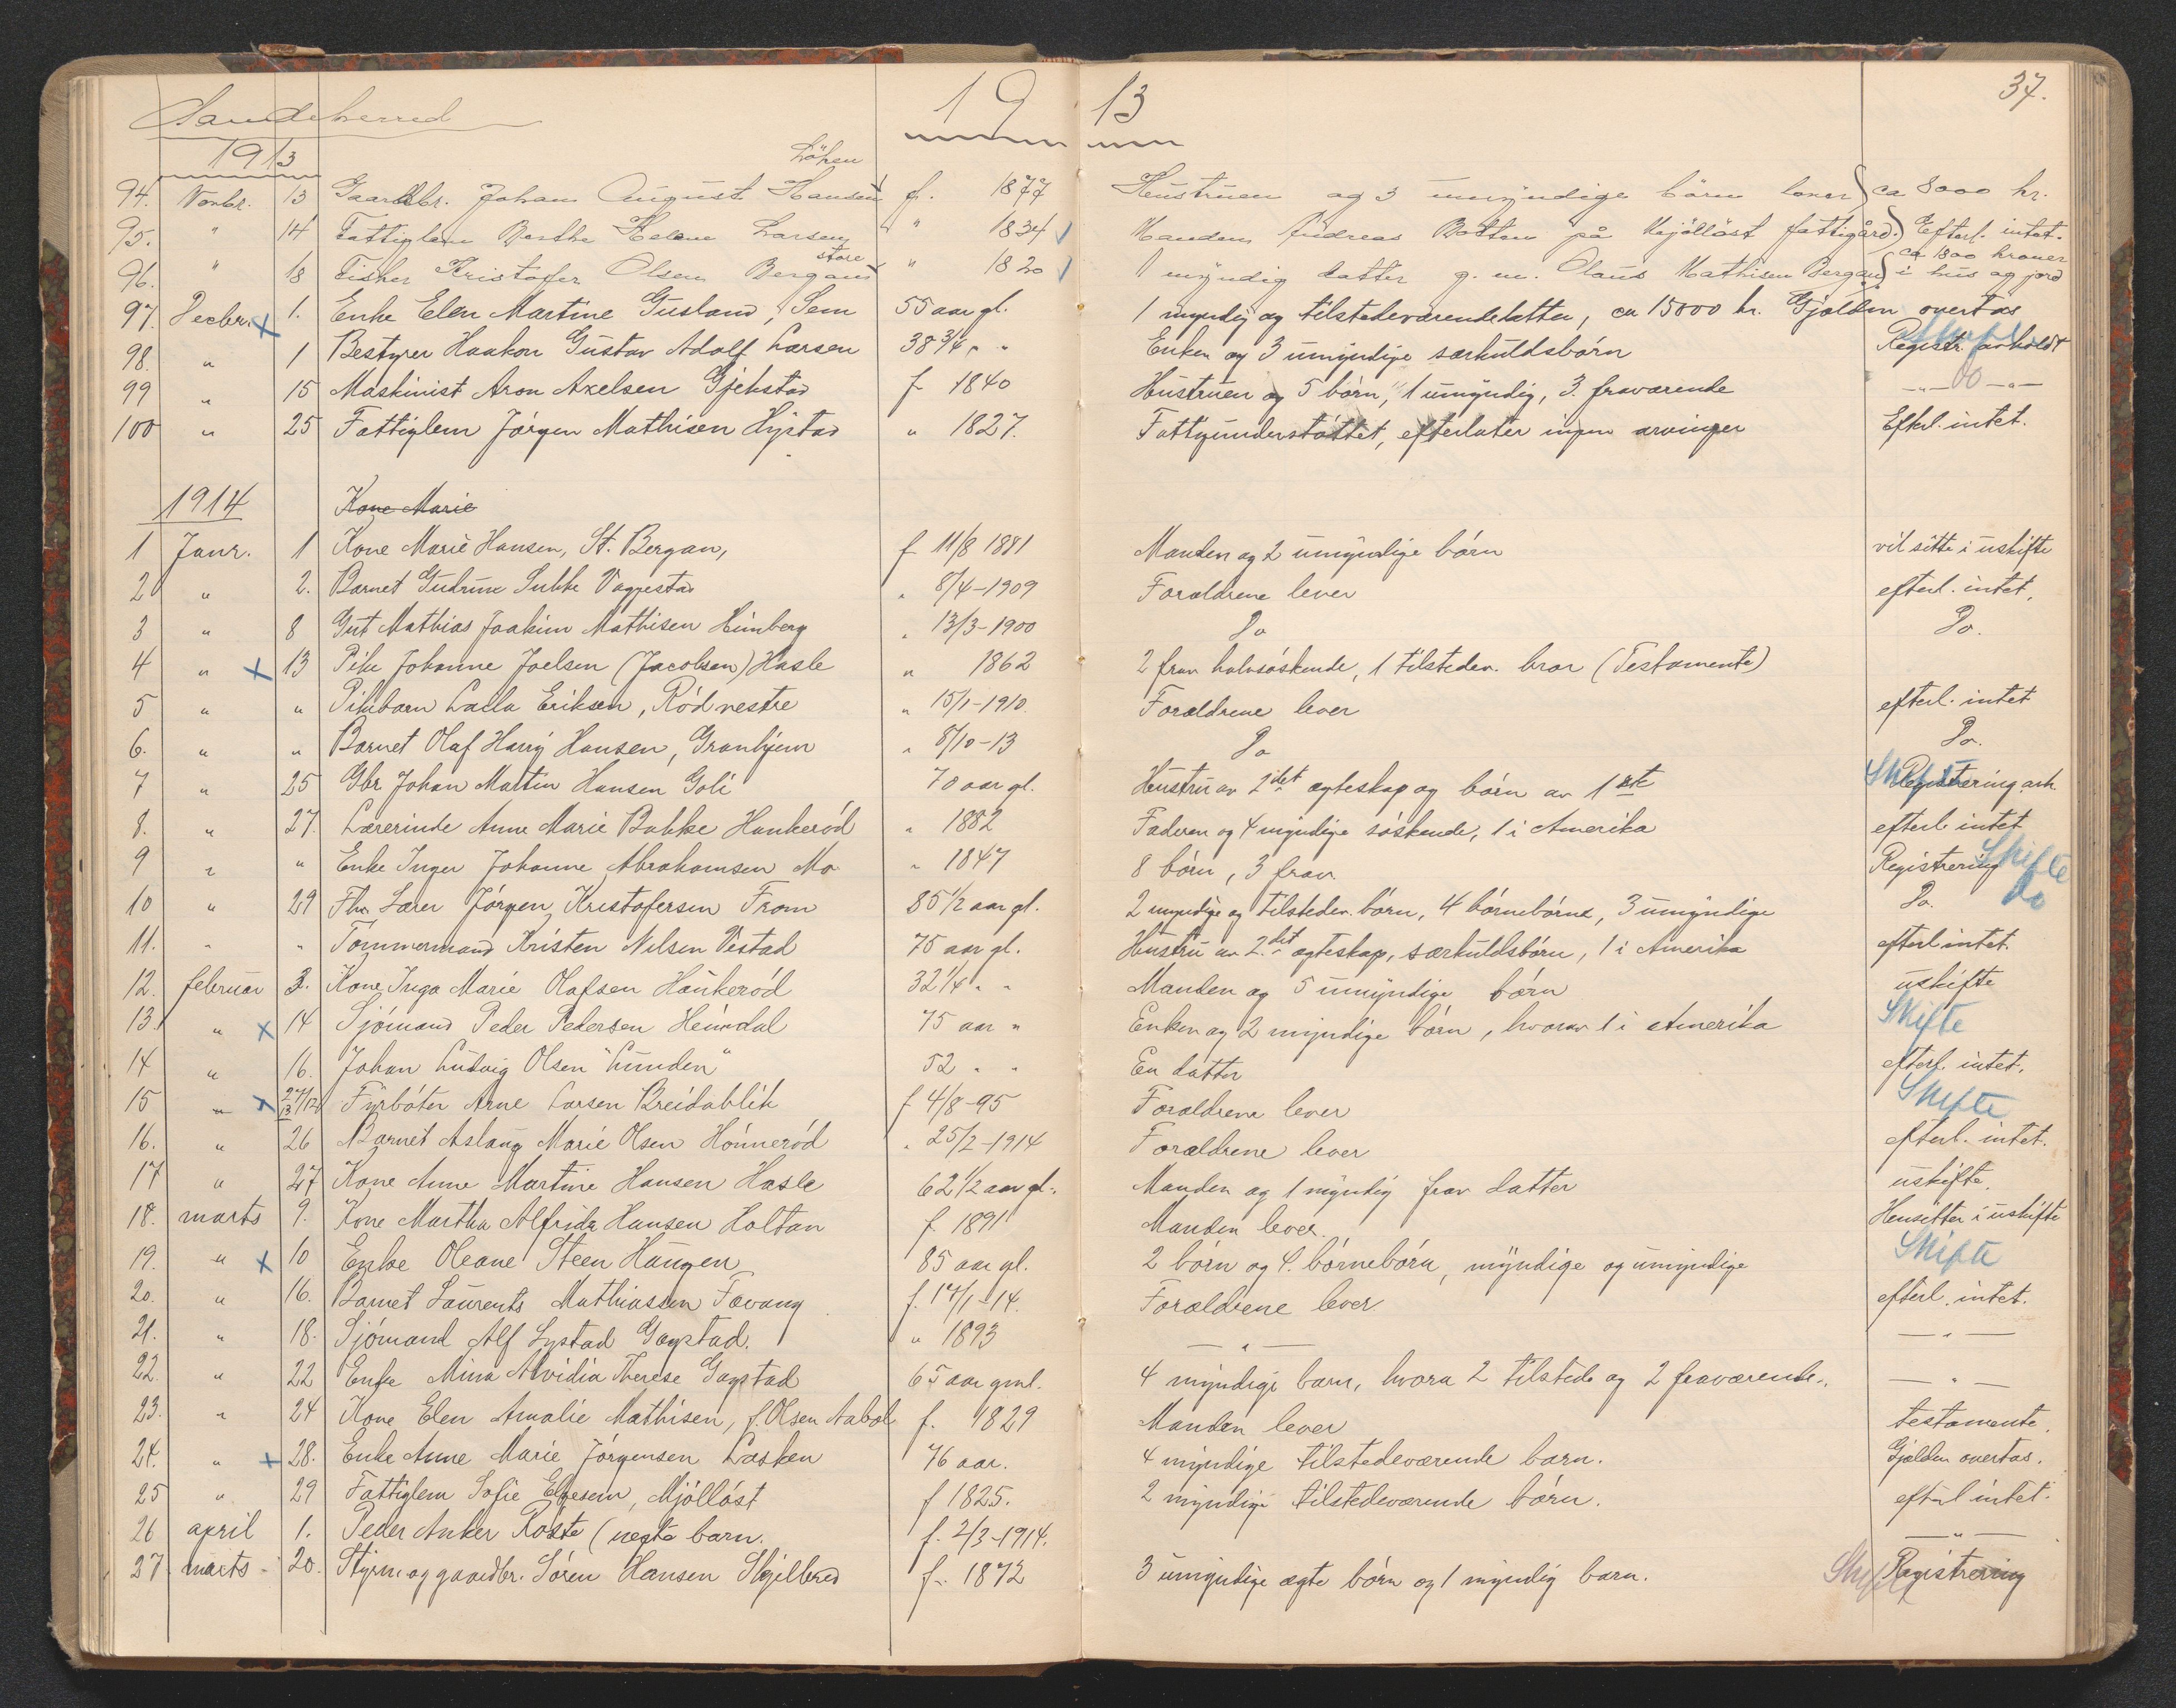 Sandeherred 19 13 37.
1913
94. Novbr. 13 Gaardbr. Johan August Hansen f. 1877 Hustruen og 3 umyndige börn lever ca 8000 kr.
95. " 14 Fattiglem Berthe Helene Larsen " 1834 Manden Andreas Botten på Mjölløst fattigård. Efterl. intet.
96. " 18 Fisker Kristofer Olsen Bergan store " 1820 1 myndig datter g. m. Olaus Mathisen Bergan ca 1800 kroner i hus og jord
97. Decbr. x 1. Enke Elen Martine Gusland, Sem 55 aar gl. 1 myndig og tilstedeværende datter, ca 15000 kr. Gjælden overtas
98. " 1 Bestyrer Haakon Gustav Adolf Larsen 38 3/4 " " Enken og 3 umyndige særkuldsbörn Registr. avholdt
99 " 15 Maskinist Aron Axelsen Gjekstad f 1840 Hustruen og 5 börn, 1 umyndig, 3 fraværende — " —
100 " 25 Fattiglem Jörgen Mathisen Hystad " 1827. Fattigunderstöttet, efterlater ingen arvinger Efterl. intet.
1914 Kone Marie
1 Janr. 1 Kone Marie Hansen, St. Bergan, f 11/8 1881 Manden og 2 umyndige börn vil sitte i uskifte
2 " 2. Barnet Gudrun Lubke Vagnestad " 8/4-1909 Forældrene lever efterl. intet.
3 " 8 Gut Mathias Joakim Mathisen Himberg " 13/3-1900 Do Do.
4 " x 13 Pike Johanne Joelsen (Jacobsen) Hasle " 1862 2 frav halvsöskende, 1 tilstedev. bror (Testamente)
5 " " Pikebarn Lalla Eriksen, Röd vestre " 15/1-1910. Forældrene lever efterl. intet
6. " " Barnet Olaf Harry Hansen, Granhjem " 8/10-13 Do Do.
7 " 25 Gbr Johan Martin Hansen Goli 70 aar gl. Hustru av 2det ægteskap og börn av 1ste Skifte Registrering avh.
8. " 27. Lærerinde Anne Marie Bakke Haukeröd " 1882 Faderen og 4 myndige söskende, 1 i Amerika efterl. intet
9 " " Enke Inger Johanne Abrahamsen Mo " 1847 8 börn, 3 frav Registrering Skifte
10 " 29 Fhv. Lærer Jörgen Kristofersen From 85 1/2 aar gl. 2 myndige og tilstedev. börn, 4 börnebörn, 3 umyndige Do. Do
11. " " Tömmermand Kristen Nilsen Vestad 75 aar gl. Hustru av 2.det ægteskap, særkuldsbörn, 1 i Amerika efterl intet.
12. februar 3. Kone Inga Marie Olafsen Haukeröd 32 1/4 " " Manden og 5 umyndige börn uskifte
13. " x 14 Sjömand Peder Pedersen Heimdal 75 aar " Enken og 2 myndige börn, hvorav 1 i Amerika Skifte
14 " 16. Johan Ludvig Olsen "Lunden" 52 " " En datter efterl. intet.
15 " x 27/12 13 Fyrböter Arne Larsen Breidablik f 4/8-95 Forældrene lever Skifte
16. " 26 Barnet Aslaug Marie Olsen Hönneröd " 25/2-1914 Forældrene lever efterl. intet.
17 " 27 Kone Anne Martine Hansen Hasle 62 1/2 aar gl. Manden og 1 myndig frav datter uskifte.
18. marts 9. Kone Martha Alfrida Hansen Holtan f. 1891 Manden lever. Hensitter i uskifte
19. " x 10 Enke Oleane Steen Haugen 85 aar gl. 2 börn og 4 börnebörn, myndige og umyndige Skifte
20. " 16. Barnet Laurents Mathiassen Fævang f. 17/1-14. Forældrene lever efterl. intet.
21. " 18. Sjömand Alf Lystad Gogstad. " 1893 — " — — " —
22. " 22 Enke Mina Alvidia Therese Gogstad 65 aar gml. 4 myndige barn, hvora 2 tilstede og 2 fraværende. — " —
23. " 24 Kone Elen Amalie Mathisen, f. Olsen Aabol f. 1829 Manden lever testamente.
24. " x 28. Enke Anne Marie Jörgensen Læsken 76 aar. 4 myndige tilstedeværende barn. Gjælden overtas.
25 " 29 Fattiglem Sofie Elgesem, Mjölløst f 1825. 2 myndige tilstedeværende börn. efterl intet.
26 april 1. Peder Anker Roste (uegte barn. f. 2/3-1914. — " —
27 marts 20. Styrm. og gaardbr. Sören Hansen Skjelbred f. 1872 3 umyndige ægte börn og 1 myndig barn. Skifte Registrering